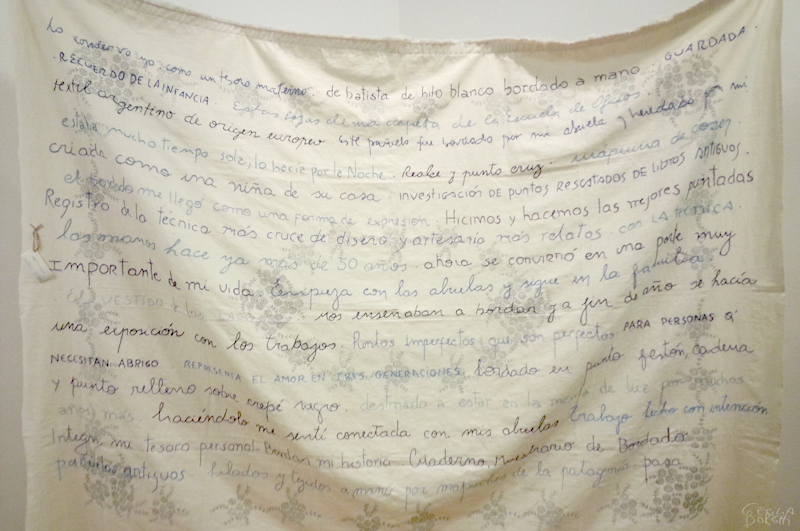 Lo conservo yo como un tesoro materno. de batista de hilo blanco bordado a mano. GUARDADA.
. RECUERDO DE LA INFANCIA. Estas hojas de mi carpeta de la Escuela de Oficios.
textil argentino de origen europeo este pañuelo fue bordado por mi abuela y heredado mi
estaba mucho tiempo sola, lo hacía por la Noche. Realce y punto cruz. máquina de coser
criada como una niña de su casa. INVESTIGACIÓN DE PUNTOS RESCATADOS DE LIBROS ANTIGUOS.
el bordado me llegó como una forma de expresión. Hicimos y hacemos las mejores puntadas
Registro de la técnica más cruce de diseño y artesanía más relatos. con LA TÉCNICA.
las manos hace ya más de 30 años. ahora se convirtió en una parte muy
Importante de mi vida. Empieza con las abuelas y sigue en la familia.
EL VESTIDO nos enseñaban a bordar y a fin de año se hacía
una exposición con los trabajos. Puntos imperfectos que son perfectos PARA PERSONAS Q'
NECESITAN ABRIGO REPRESENTA EL AMOR EN TRES GENERACIONES, bordado en punto festón, cadena
y punto relleno sobre crepé negro. destinado a estar en la de luz por muchos
años) más haciéndolo me sentí conectada con mis abuelas trabajo hecho con intención
Integra mi tesoro personal. Bordar mi historia. Cuaderno, Muestrario de Bordados
pañuelos antiguos hilados y tejidos a mano por mapuches de la patagonia para
CECILIA